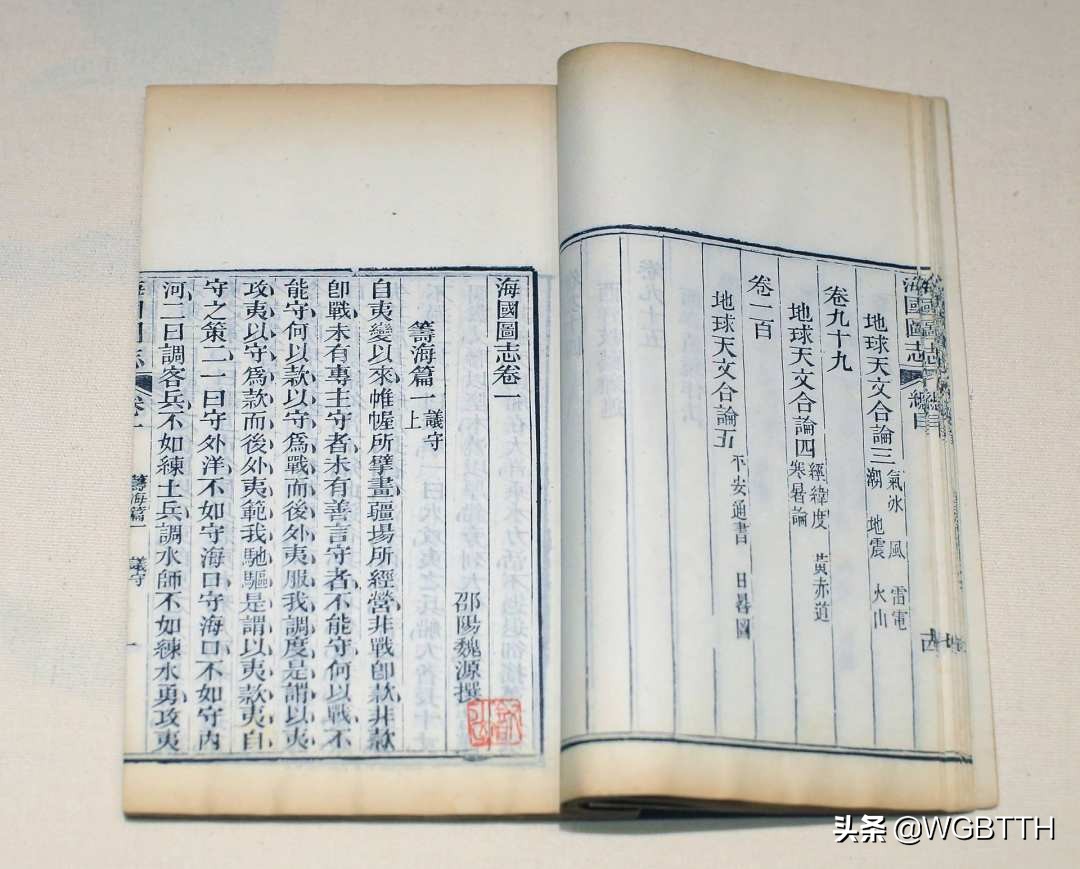 地球天文合論三 氣水 風 雷電 潮 地震 火山
卷九十九
地球天文合論四 經緯度 黃赤道 寒暑論
卷一百
地球天文合論五 平安通書 日晷圖
海國圖志 總目
海國圖志卷一
邵陽魏源撰
籌海篇一 議守上
自夷變以來帷幄所擘畫疆場所經營非戰卽款非款
卽戰未有專主守者未有善言守者不能守何以戰不
能守何以款以守爲戰而後外夷服我調度是謂以夷
攻夷以守爲款而後外夷範我馳驅是謂以夷款夷自
守之策二一曰守外洋不如守海口守海口不如守內
河二曰調客兵不如練土兵調水師不如練水勇攻夷
卷一 籌海篇一 議守 一
头条 @WGBTTH